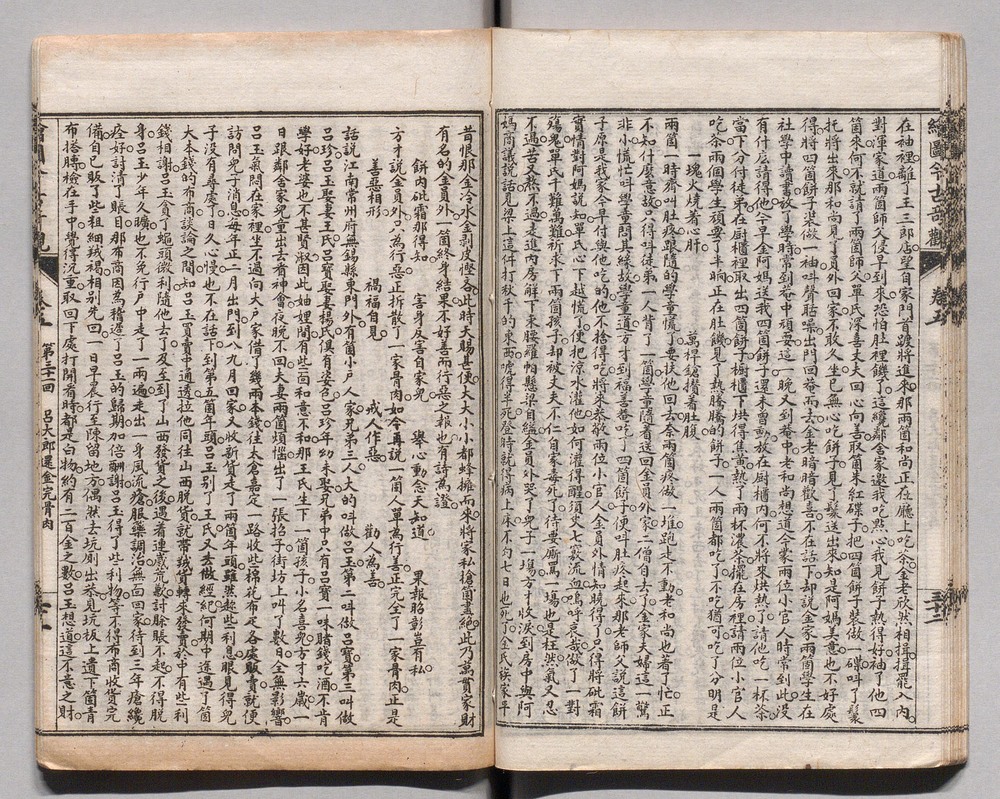 繪圖今古奇觀 卷五
在袖裡離了王三郎店望自家門首踱將進來那兩箇和尚正在廳上吃茶金老欣然相揖揖罷入內
對渾家道兩箇師父侵早到來恐怕肚裡饑了這纔鄰舍家邀我吃㸃心我見餅子熱得好袖了他四
箇來何不就請了兩箇師父單氏深喜丈夫回心向善取箇朱紅碟子把四箇餅子裝做一碟叫丫鬟
托將出去那和尚見了員外回家不敢久坐已無心吃餅了見丫鬟送出來知是阿媽美意也不好處
得將四箇餅子裝做一袖叫聲聒噪出門回菴而去金老暗暗歡喜不在話下却說金家兩箇學生在
社學中讀書放了學時常到菴中頑耍這一晚又到菴中老和尚想道金家兩位小官人時常到此沒
有什麼請得他今早金阿媽送我四箇餅子還未曾動放在厨櫃內何不將來烘熱了請他吃一杯茶
當下分付徒弟在厨櫃裡取出四箇餅子厨櫃下烘得焦黃熱了兩杯濃茶擺在房裡請兩位小官人
吃茶兩個學生頑耍了半晌正在肚饑見了熱騰騰的餅子一人兩箇都吃了不吃猶可吃了分明是
一塊火燒着心肝 萬桿鎗攢着肚腹
兩箇一時齊叫肚疼跟隨的學童慌了要扶他回去奈兩箇疼做一堆跑走不動老和尚也着了忙正
不知什麼意故只得叫徒弟一人背了一箇學童隨着送回金員外家二僧自去了金家夫婦這一驚
非小慌忙叫學童問其緣故學童道方才到福善菴吃了四箇餅子便叫肚疼起來那老師父說這餅
子原是我家今早付與他吃的他不捨得吃將來恭敬兩位小小官人金員外情知曉得了只得將砒霜
實情對阿媽說知單氏心下越慌了便把涼水灌他如何灌得醒須臾七竅流血嗚呼哀哉做了一對
殤鬼單氏千難萬難祈求下兩箇孩子却被丈夫不仁自家毒死了待要厮罵一場也是枉然氣又忍
不過苦又熬不過走進內房解下束腰羅帕懸梁自縊金員外哭了兒子一場方才收淚到房中與阿
媽商議說話見梁上這件打秋千的東西唬得半死登時就得病上床不勾七日也死了金氏族家平
昔恨那金冷水金剝皮慳吝此時天賜其便大大小小都蜂擁而來將家私搶箇盡絕此乃萬貫家財
有名的金員外一箇終身結果不好善而行惡之報也有詩為證
餅內砒霜那得知 害身反害自家兒 舉心動念天知道 果報昭彰豈有私
方才說金員外只為行惡正拆散了一家骨肉如今再說一箇人單為行善正完全了一家骨肉正是
善惡相形 禍福自見 戒人作惡 勸人為善
話說江南常州府無錫縣東門外有箇小戶人家兄弟三人大的叫做呂玉第二叫做呂寶第三叫做
呂珍呂玉娶妻王氏呂寶娶妻楊氏俱有姿色呂珍年幼未娶兄弟中只有呂寶一味賭錢吃酒不肯
學好老婆也不甚賢淑因此妯娌間有些面和意不和那王氏生下一箇孩子小名喜兒方才六歲一
日跟鄰舍家兒童出去看神會夜晚不回夫妻兩箇煩惱出了一張招子街坊上叫了數日全無影響
呂玉氣悶在家裡坐不過向大戶家借了幾兩本錢往太倉嘉定一路收些棉花布疋各處販賣就便
訪問兒子消息每年正二月出門到八九月回家又收新貨走了兩箇年頭雖然趁些利息眼見得兒
子沒有尋處了日久心慢也不在話下到第五箇年頭呂玉別了王氏又去做經紀何期中途遇了箇
大本錢的布商談論之間知呂玉買賣中通透拉他同往山西脫貨就帶絨貨轉來發賣於中有些利
錢相謝呂玉貪了蠅頭微利隨他去了及至到了山西發貨之後遇着連歲荒歉討賒賬不起不得脫
身呂玉少年久曠也不免行戶中走了一兩遍走出一身風流瘡服藥調治無面回家待到三年瘡纔
痊好討清了賬目那布商因為稽遲了呂玉的歸期加倍酬謝呂玉得了些利物等不得布商收貨完
備自已販了些粗細絨褐相別先回一日早晨行至陳留地方偶然去坑廁出恭見坑板上遺下箇青
布搭膊撿在手中覺得沉重取回下處打開看時都是白物約有二百金之數呂玉想道這不意之財
卷五 第三十一回 呂大郎還金完骨肉